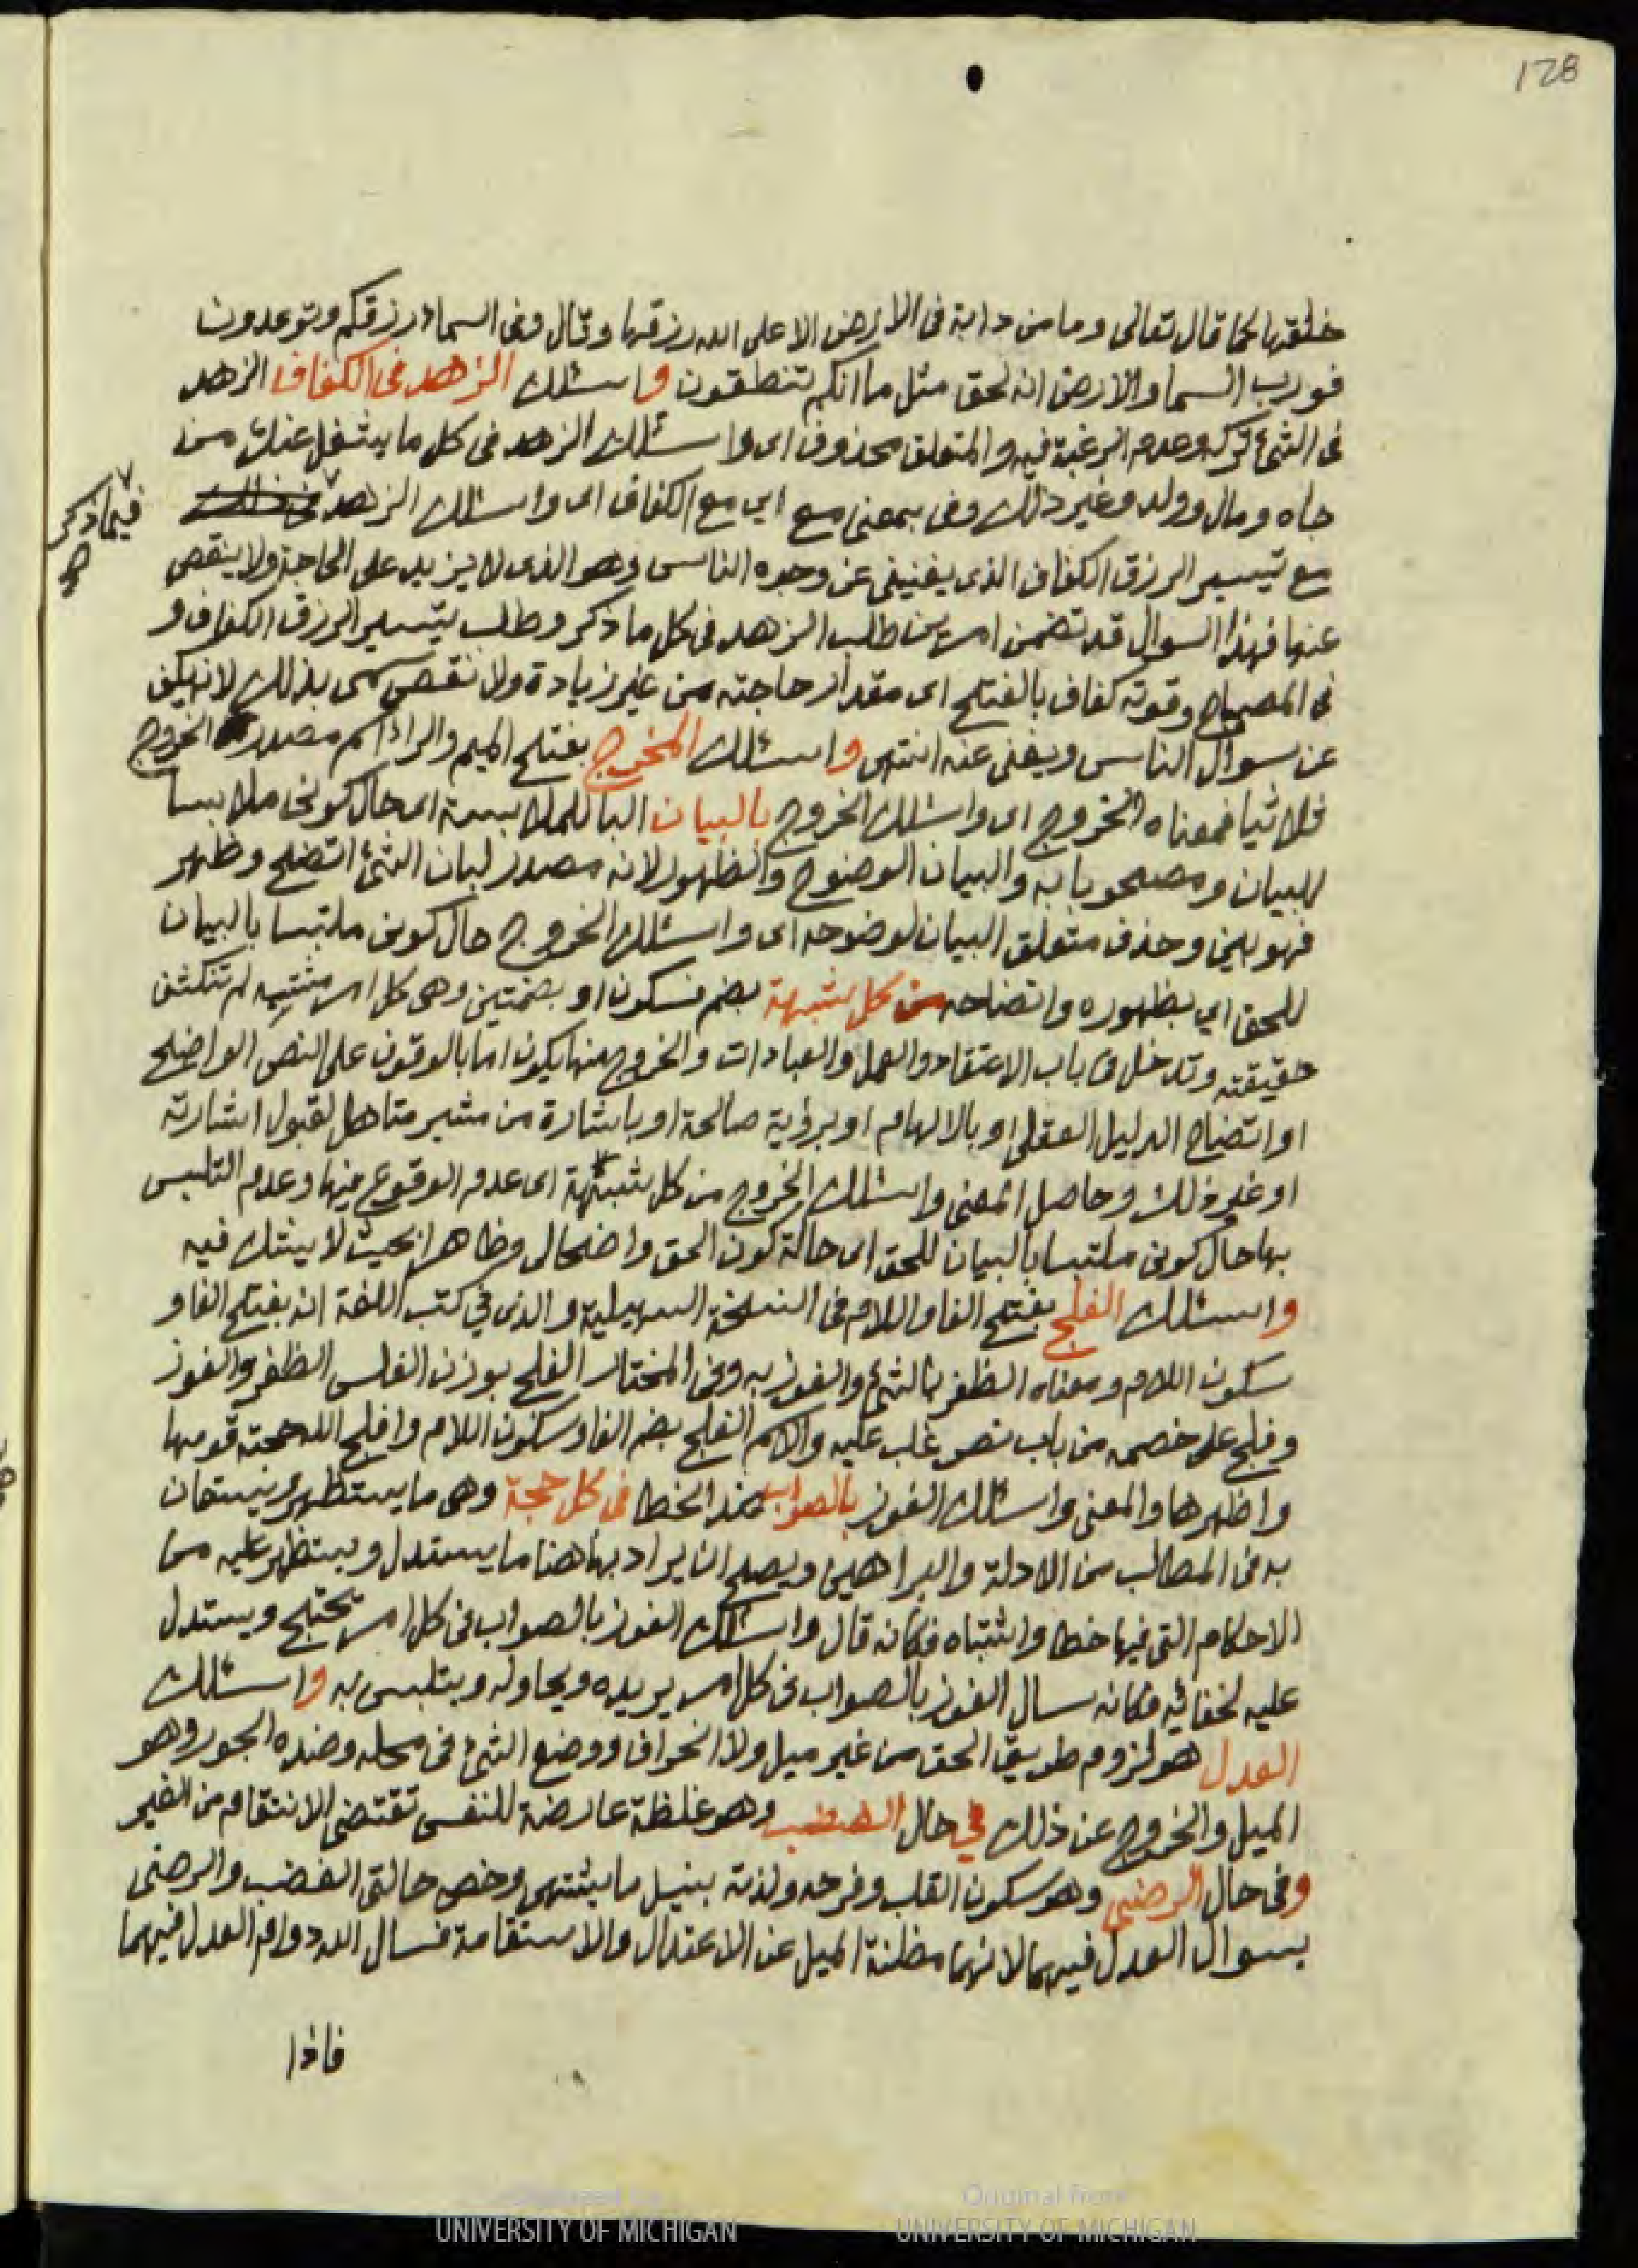 128
خلقها كما قال تعالى وما من دابة فى الارض الا على الله رزقها وقال وفى السماء رزقكم وتوعدون
فورب السما والارض انه لحق مثل ما انكم تنطقون واسئلك الزهد فى الكفاف الزهد
فى الشئ تركه وعدم الرغبة فيه والمتعلق محذوف اى واسئلك الزهد فى كل ما يشغل عنك من
جاه ومال وولد وغير ذلك وفى بمعنى مع اي مع الكفاف اى واسئلك الزهد
فيما ذكر صح
مع تيسير الرزق الكفاف الذى يغنينى عن وجوه الناس وهو الذى لا يزيد على الحاجة ولا ينقص
عنها فهذا السوال قد تضمن امرين طلب الزهد فى كل ما ذكر وطلب تيسير الرزق الكفاف و
فى المصباح وقوته كفاف بالفتح اى مقدار حاجته من غير زيادة ولا نقص سمى بذلك لانه يكف
عن سوال الناس ويغنى عنه انتهى واسئلك المخرج بفتح الميم والراء اسم مصدر الخروج
ثلاثيا فمعناه الخروج اى واسئلك الخروج بالبيان البا للملابسة اى حال كونى ملابسا
للبيان ومصحوبا به والبيان الوضوح والظهور لانه مصدر لبان الشئ اتضح وظهر
فهو بين وحذف متعلق البيان لوضوحه اى واسئلك الخروج حال كونى ملتبسا بالبيان
للحق اي بظهوره واتضاحه من كل شبهة بضم فسكون او بضمتين وهى كل امر مشتبه لم تنكشف
حقيقته وتدخل فى باب الاعتقاد والعمل والعبادات والخروج منها يكون اما بالوقوف على النص الواضح
او اتضاح الدليل العقلى او بالالهام او برؤية صالحة او باشارة من مشير متاهل لقبول اشارته
او غير ذلك وحاصل المعنى واسئلك الخروج من كل شبهة اى عدم الوقوع فيها وعدم التلبس
بها حال كونى ملتبسا بالبيان للحق اى حالة كون الحق واضحا لى وظاهرا بحيث لا يشك فيه
واسئلك الفلج بفتح الفا واللام فى النسخة السهيلية والذى في كتب اللغة انه بفتح الفا و
سكون اللام ومعناه الظفر بالشئ والفوز به وفى المختار الفلج بوزن الفلس الظفر والفوز
وفلج على خصمه من باب نصر غلب عليه والاسم الفلج بضم الفا وسكون اللام وافلج الله حجته قومها
واظهرها والمعنى واسئلك الفوز بالصواب ضد الخطا فى كل حجة وهى ما يستظهر ويستعان
به فى المطالب من الادلة والبراهين ويصح ان يراد بها هنا ما يستدل ويستظهر عليه من
الاحكام التى فيها خطا واشتباه فكانه قال واسئلك الفوز بالصواب فى كل امر يحتج ويستدل
عليه لخفائه فكانه سال الفوز بالصواب فى كل امر يريده ويحاوله ويتلبس به واسئلك
العدل هو لزوم طريق الحق من غير ميل ولا انحراف ووضع الشئ فى محله وضده الجور وهو
الميل والخروج عن ذلك في حال الغضب وهو غلظة عارضة للنفس تقتضى الانتقام من الغير
وفى حال الرضى وهو سكون القلب وفرحه ولذته بنيل ما يشتهى وخص حالتى الغضب والرضى
بسوال العدل فيهما لانهما مظنة الميل عن الاعتدال والاستقامة فسال الله دوام العدل فيهما
فاذا
Original from
UNIVERSITY OF MICHIGAN
UNIVERSITY OF MICHIGAN